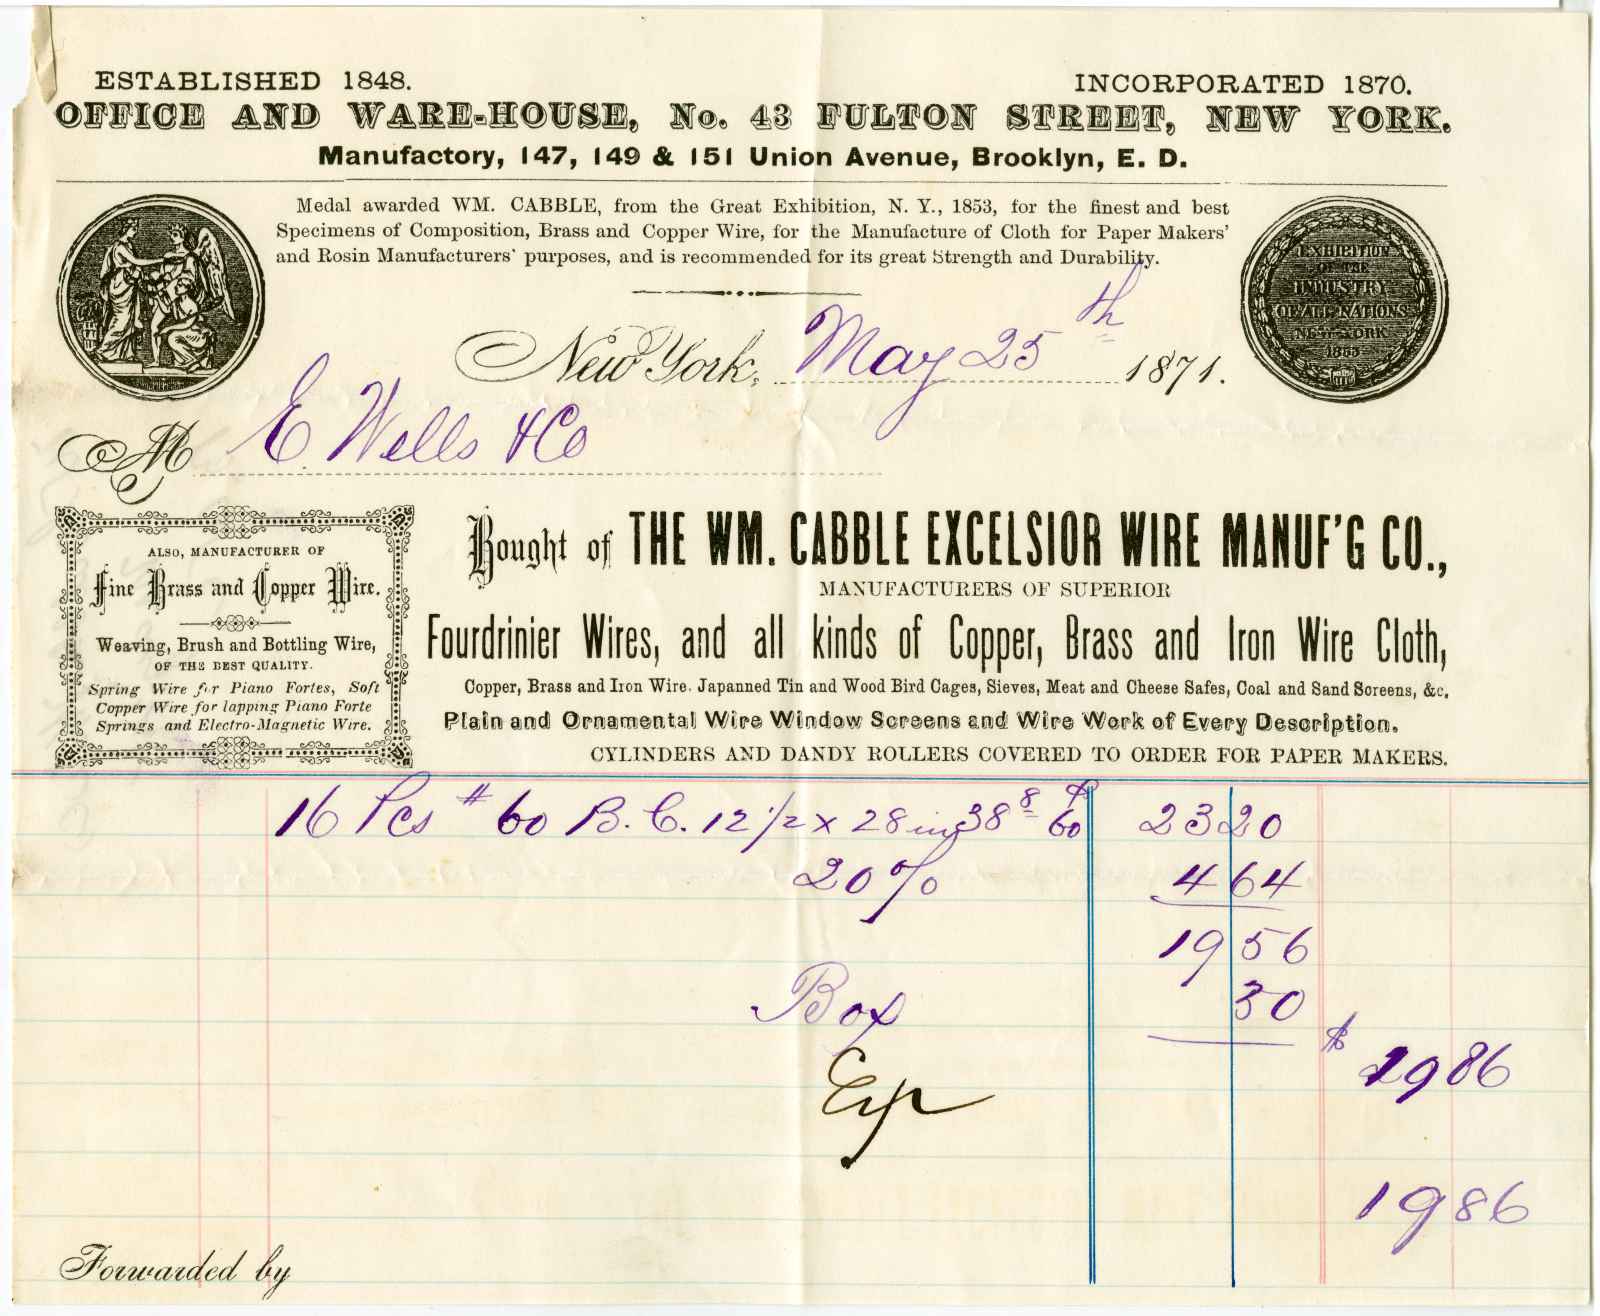 ESTABLISHED 1848. INCORPORATED 1870.
OFFICE AND WARE-HOUSE, No. 43 FULTON STREET, NEW YORK.
Manufactory, 147, 149 & 151 Union Avenue, Brooklyn, E. D.
Medal awarded WM. CABBLE, from the Great Exhibition, N. Y., 1853, for the finest and best
Specimens of Composition, Brass and Copper Wire, for the Manufacture of Cloth for Paper Makers'
and Rosin Manufacturers' purposes, and is recommended for its great Strength and Durability.
EXHIBITION
OF THE
INDUSTRY
OF ALL NATIONS
NEW-YORK
1853
New York, May 25th 1871.
M E. Wells & Co
ALSO, MANUFACTURER OF
Fine Brass and Copper Wire.
Weaving, Brush and Bottling Wire,
OF THE BEST QUALITY.
Spring Wire for Piano Fortes, Soft
Copper Wire for lapping Piano Forte
Springs and Electro-Magnetic Wire.
Bought of THE WM. CABBLE EXCELSIOR WIRE MANUF'G CO.,
MANUFACTURERS OF SUPERIOR
Fourdrinier Wires, and all kinds of Copper, Brass and Iron Wire Cloth,
Copper, Brass and Iron Wire. Japanned Tin and Wood Bird Cages, Sieves, Meat and Cheese Safes, Coal and Sand Screens, &c.
Plain and Ornamental Wire Window Screens and Wire Work of Every Description.
CYLINDERS AND DANDY ROLLERS COVERED TO ORDER FOR PAPER MAKERS.
16 Pcs # 60 B. C. 12 1/2 x 28 in 38 8 $ 60 23 20
20% 4 64
19 56
Box 30
$ 19 86
Exp
19 86
Forwarded by